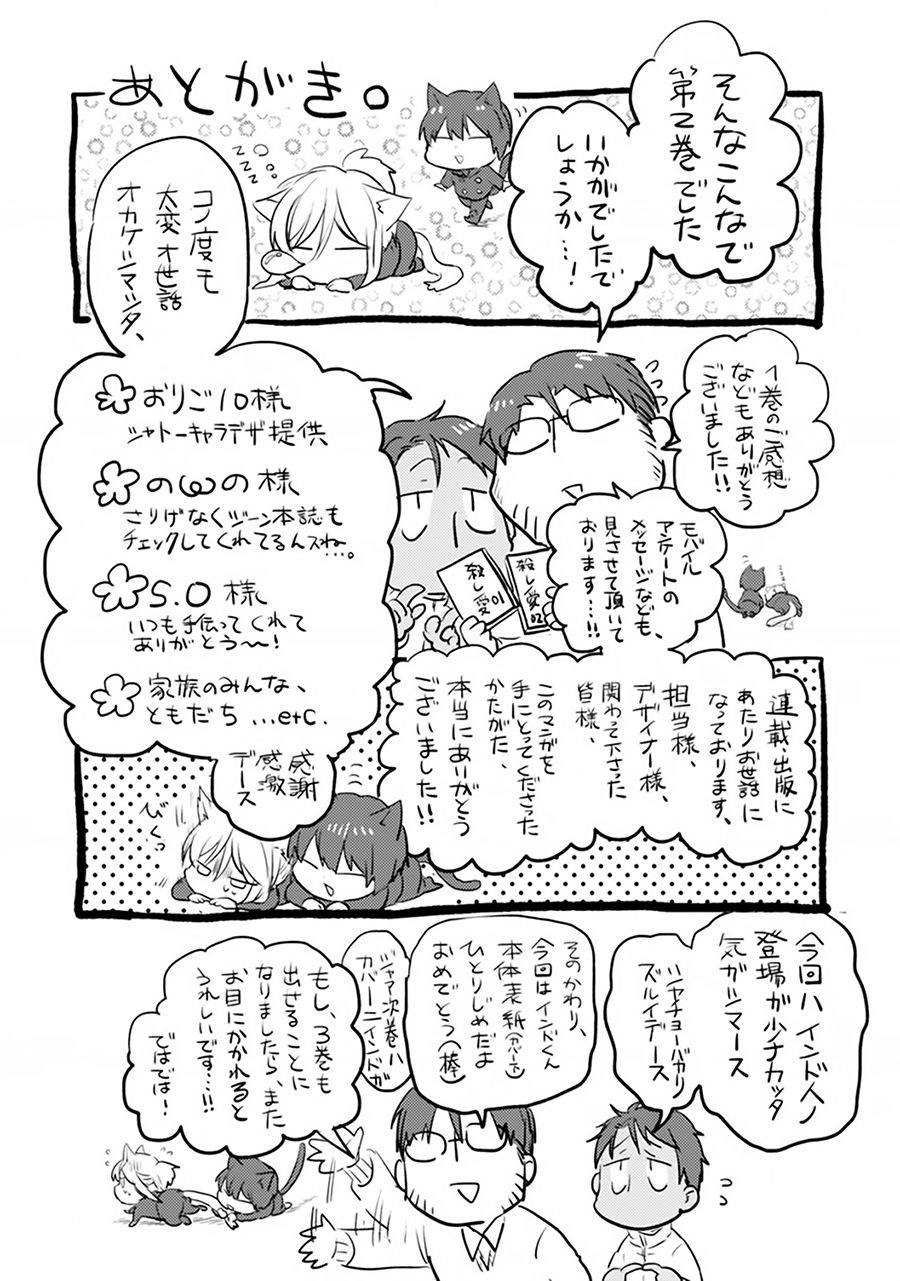 あとがき。
そんなこんなで
第2巻でした
いかがでしたで
しょうか…!
ZZZ
1巻のご感想
などもありがとう
ございました!!
モバイル
アンケートの
メッセージなども、
見させて頂いて
おります…!!
殺し愛01
殺し愛02
コノ度モ
大変オ世話
オカケシマシタ、
おりご10様
シャトーキャラデザ提供
のωの様
さりげなくジーン本誌も
チェックしてくれてるんスね…。
S.O様
いつも手伝ってくれて
ありがとう〜!
家族のみんな、
ともだち …etc.
感謝
感激
デース
連載・出版に
あたりお世話に
なっております、
担当様、
デザイナー様、
関わって下さった
皆様、
このマンガを
手にとってくださった
かたがた、
本当にありがとう
ございました!!
びくっ
今回ハインド人ノ
登場が少ナカッタ
気がシマース
シャチョーバカリ
ズルイデース
そのかわり、
今回はインドくん
本体表紙(カバー下)
ひとりじめだよ
おめでとう(棒)
ジャア次巻ハ
カバーニインドガ
もし、3巻も
出せることに
なりましたら、また
お目にかかれると
うれしいです…!!
ではでは!